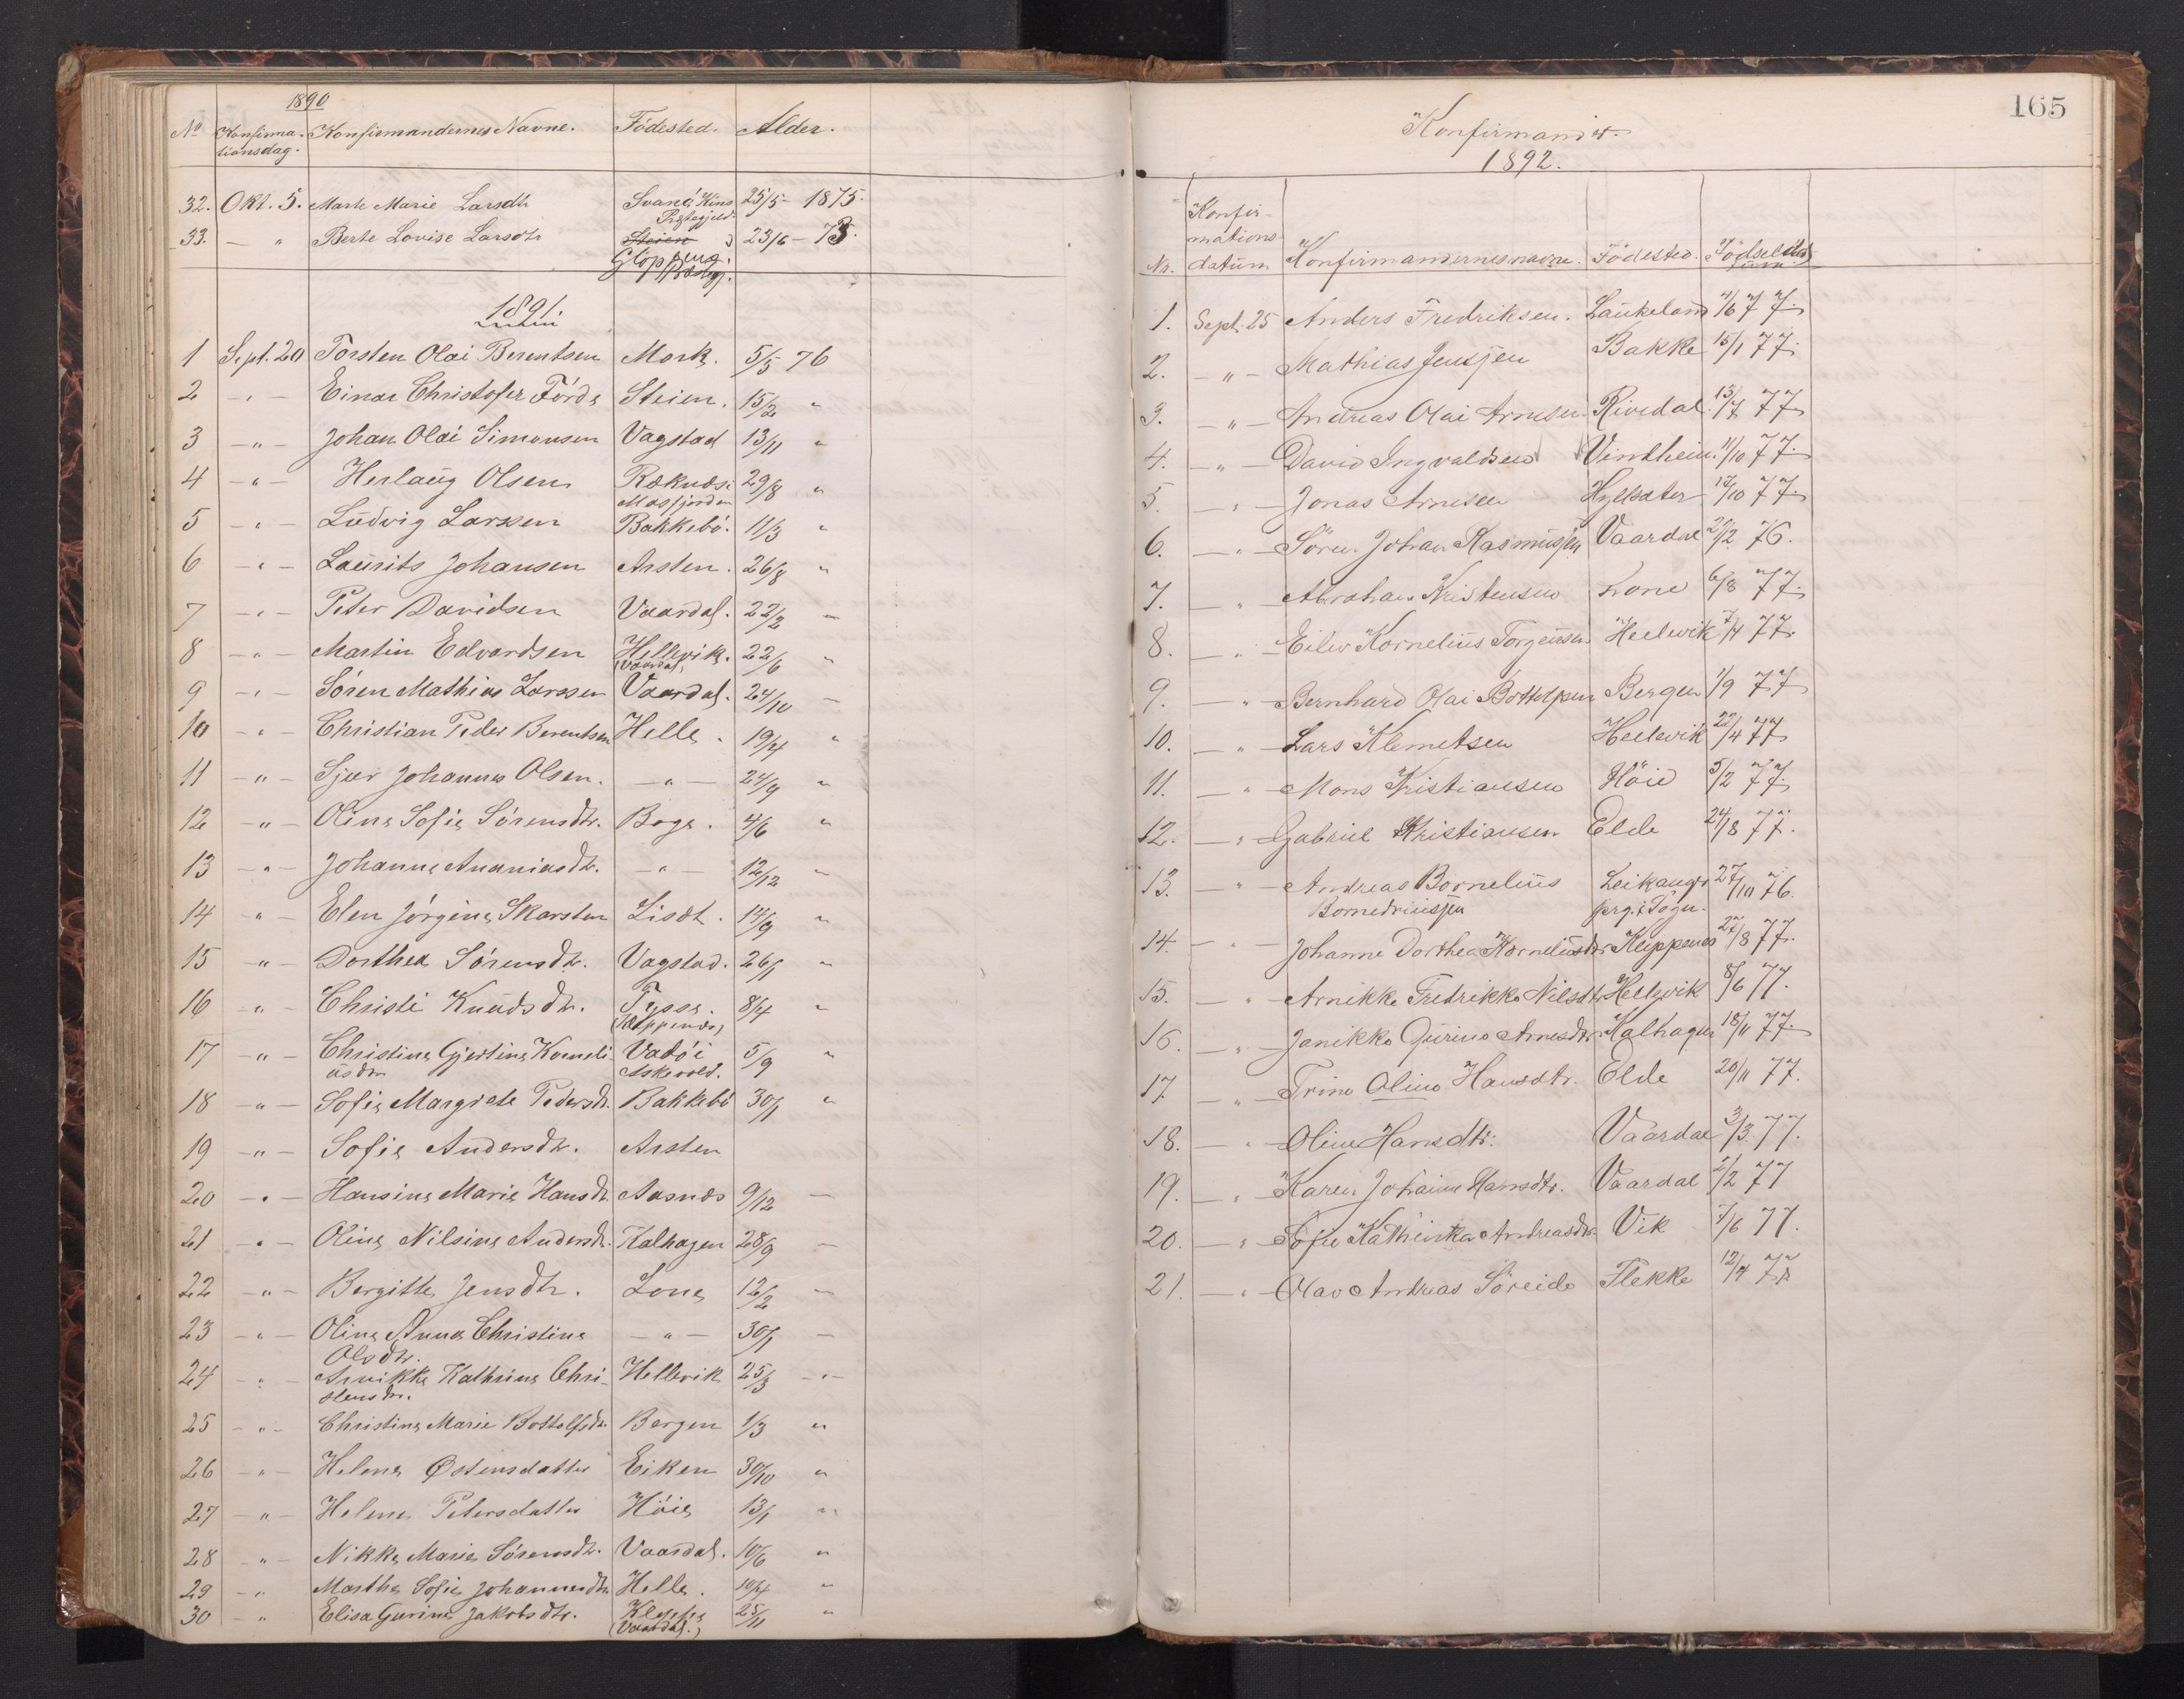 1890
No Konfirma- Konfirmandernes Navne. Födested. Alder.
tionsdag.
32. Okt. 5. Marte Marie Larsdtr Svanö, Kins 25/5 - 1875.
Præstegjeld.
33. — " Berte Lovise Larsdtr Steien 23/6 - 73.
Gloppens
Præstegj.
1891.
1 Sept. 20 Torsten Olai Berentsen Mork. 5/5 76
2 - " - Einar Christofer Förde Steien. 15/2 "
3 - " - Johan Olai Simonsen Vagstad 13/11 "
4 - " - Herlaug Olsen Reknæs. 29/8 "
Masfjorden
5 - " - Ludvig Larssen Bakkebö. 11/3 "
6 - " - Laurits Johansen Arsten. 26/8 "
7 - " - Peter Davidsen Vaardal. 22/2 -
8 - " - Martin Edvardsen Hellevik. 22/6 "
(Vaardal)
9 - " - Sören Mathias Larssen Vaardal. 24/10 -
10 - " - Christian Peder Berentsen Helle. 19/4 "
11 - " - Sjur Johannes Olsen. - " - 24/9 "
12 - " - Oline Sofie Sörensdtr. Boge. 4/6 "
13 - " - Johanne Ananiasdtr. - " - 12/12 "
14 " - Elen Jörgine Skarsten Lisæt. 14/9 "
15 " - Dorthea Sörensdtr. Vagstad. 26/1 "
16 " - Christi Knudsdtr. Tysse. 8/4 "
(Kleppenæs)
17 - " - Christine Gjertine Korneli- Vadöi 5/9 "
usdtr Askevold.
18 - " - Sofie Margrete Pedersdtr. Bakkebö 30/1 "
19 - " - Sofie Andersdtr. Arsten
20 - " - Hansine Marie Hansdtr. Aasnæs 9/12 —
21 - " - Oline Nilsine Andersdtr. Kalhagen 28/9 —
22 - " - Bergitte Jensdtr. Lone 12/2 —
23 - " - Oline Anna Christine - " - 30/1 —
Olsdtr.
24 - " - Arnikke Kathrine Chri- Hellevik 25/3 - " -
stensdtr.
25 - " - Christine Marie Bottolfsdtr. Bergen 1/3 "
26 - " - Helene Østensdatter Eiken 30/10 "
27 - " - Helene Petersdatter Höie 13/1 "
28 " - Nikke Marie Sörensdtr. Vaardal. 10/6 "
29 - " Marthe Sofie Johannesdtr. Helle. 10/4 "
30 - " Elisa Gurine Jakobsdtr. 25/11 "
(Vaardal.)
165
Konfirmander.
1892.
Konfir-
mations-
Nr. datum Konfirmandernes navne. Födested. Födselsda-
tum
1. Sept. 25 Anders Fredriksen. Laukeland 4/6 77.
2. — " — Mathias Jenssen Bakke 15/1 77.
3. — " — Andreas Olai Arnesen. Rivedal. 13/7 77
4. — " — David Ingvaldsen Vindheim. 11/10 77.
5. — " — Jonas Arnesen Hyllsæter 17/10 77.
6. — " — Sören Johan Rasmussen Vaardal 22/2 76.
7. — " Abraham Kristensen Lone 6/8 77.
8. — " — Eilev Kornelius Torgersen Hellevik 7/4 77.
9. — " — Bernhard Olai Bottolfsen Bergen 1/9 77
10. — " — Lars Klemetsen Hellevik 22/4 77
11. — " — Mons Kristiansen Höie 5/2 77.
12. — " — Gabriel Kristiansen Elde 24/8 77.
13. — " — Andreas Bornelius Leikanger 27/10 76.
prg. i Sogn.
14. — " — Johanne Dorthea Korneliusdtr. Kleppenes 27/8 77.
15. — " — Arnikke Fredrikke Nilsdtr. Hellevik 8/6 77.
16. — " — Janikke Gurine Arnesdtr. Kalhagen 18/11 77
17. — " — Trine Oline Hansdtr. Elde 20/11 77.
18. — " — Oline Hansdtr. Vaardal 3/3. 77.
19. — " — Karen Johanne Hansdtr. Vaardal 2/2 77
20. — " — Sofie Kathinka Andreasdtr. Vik 7/6 77.
21. — " — Olav Andreas Söreide Flekke 12/4